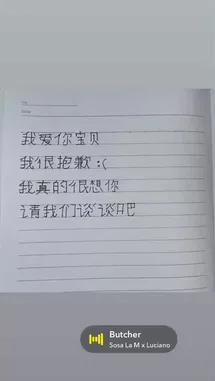 我爱你宝贝
我很抱歉 :(
我真的很想你
请我们谈谈吧
Butcher
Sosa La M x Luciano